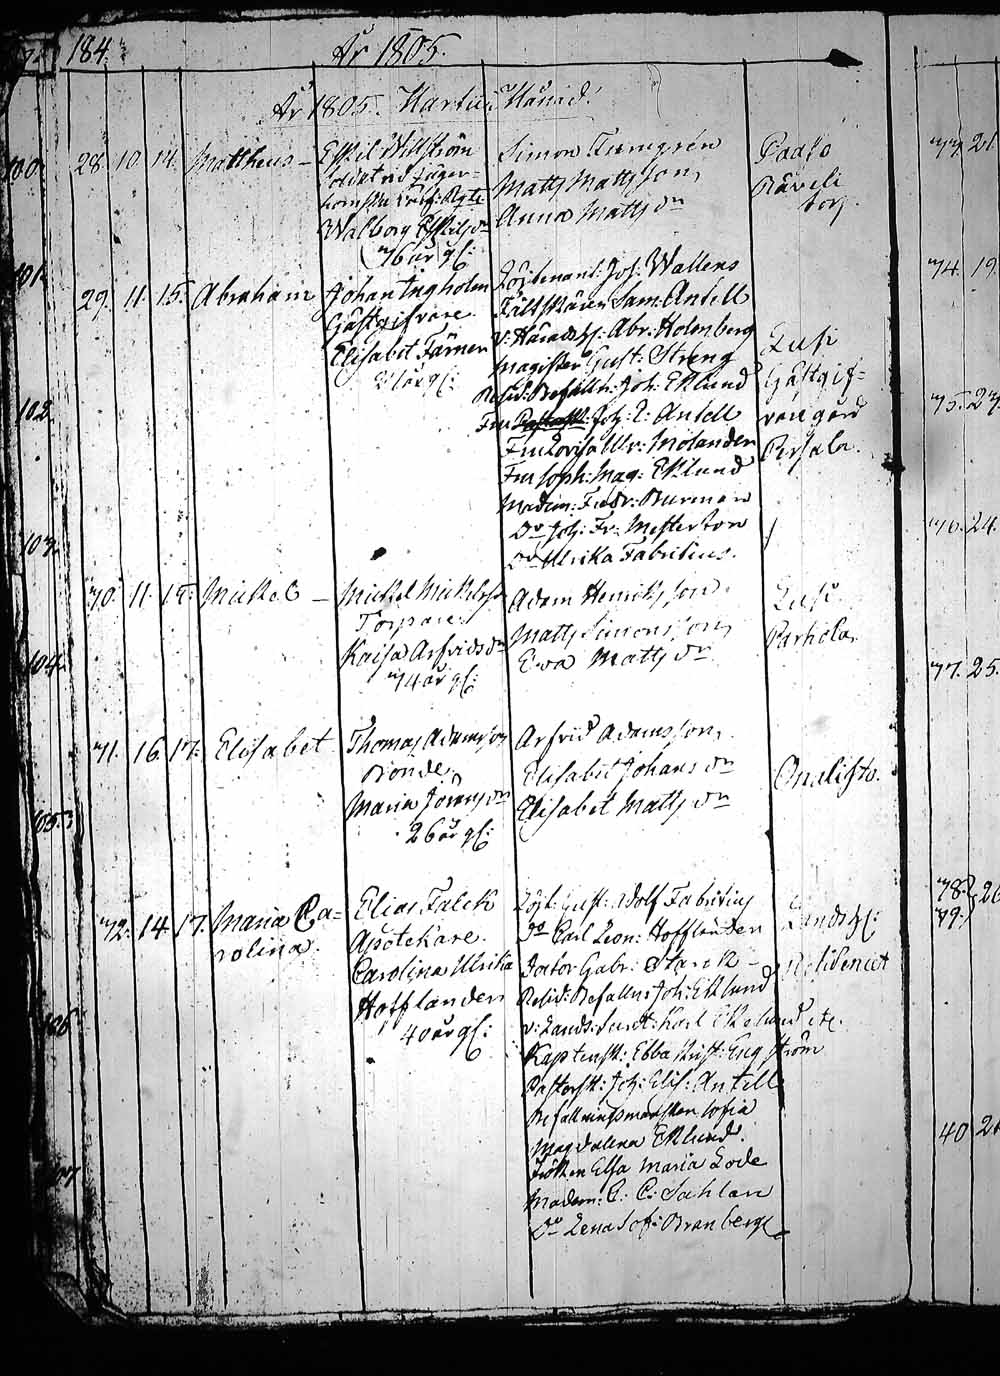 184.
År 1805.
År 1805. Martii Månad.
28. 10. 14. Mattheus –
Eskil Willström
Walborg Eskilsdr
36 år gl:
Simon Tamgrén
Matts Mattsson,
Anna Mattsdr
Paaso
Räveli
torp.
29. 11. 15. Abraham
Johan Ingholm
Gästgifvare
Elisabet Färner
år gl:
Löjtenant: Joh: Wallens
Fältskären Sam: Antell
v: Häradsh: Abr: Holenberg
Magister Gust: Streng
Resid: Befalln: Joh: Eklund
Fru Joh: E: Antell
Fru Lovisa Ulr: Molander
Fru Soph: Mag: Eklund
Madem: Fredr: Burman
Do Joh: Fr: Mesterton
Do Ulrika Fabritius.
Lusi
Gästgif=
vare gård
30. 11. 15. Mickel –
Mickel Mickelss:
Torpare.
Kaisa Arfvidsdr
34 år gl:
Adam Henricksson,
Matts Simonsson,
Eva Mattsdr
Lusi
31. 16. 17. Elisabet
Thomas Adamsson
Bonde,
Maria Göransdr
26 år gl:
Arfvid Adamsson,
Elisabet Johansdr
Elisabet Mattsdr
32. 14. 17. Maria Ca=
rolina.
Elias Falck
Apotekare.
Carolina Ulrika
Hofflander
40 år gl:
Löjt: Gust: Adolf Fabritius
Do Carl Leon: Hofflander
Gabr: Starck –
Resid: Befallns Joh: Eklund
v: Lands: Karl Ekelund etc.
Kaptensk: Ebba Krist: Engström
Pastorsk: Joh: Elis: Antell
Befallningsmansken Sofia
Magdalena Eklund.
Fröken Elsa Maria Lode
Madem: C: C: Sahlan
Do Lena Sof: Branberg
Landsh:
Residencet
100.
101.
102.
103.
104.
105.
106.
33. 21.
34. 19.
35. 23.
36. 24.
37. 25.
38.
39.
40